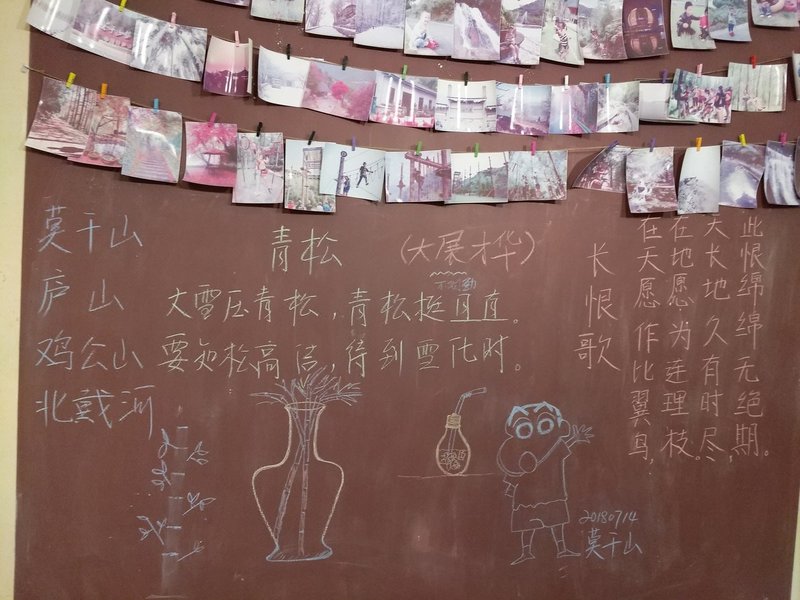 莫干山
庐山
鸡公山
北戴河
青松 (大展才华)
大雪压青松，青松挺且直。
要知松高洁，待到雪化时。
长恨歌
在天愿作比翼鸟，
在地愿为连理枝。
天长地久有时尽，
此恨绵绵无绝期。
20180714
莫干山